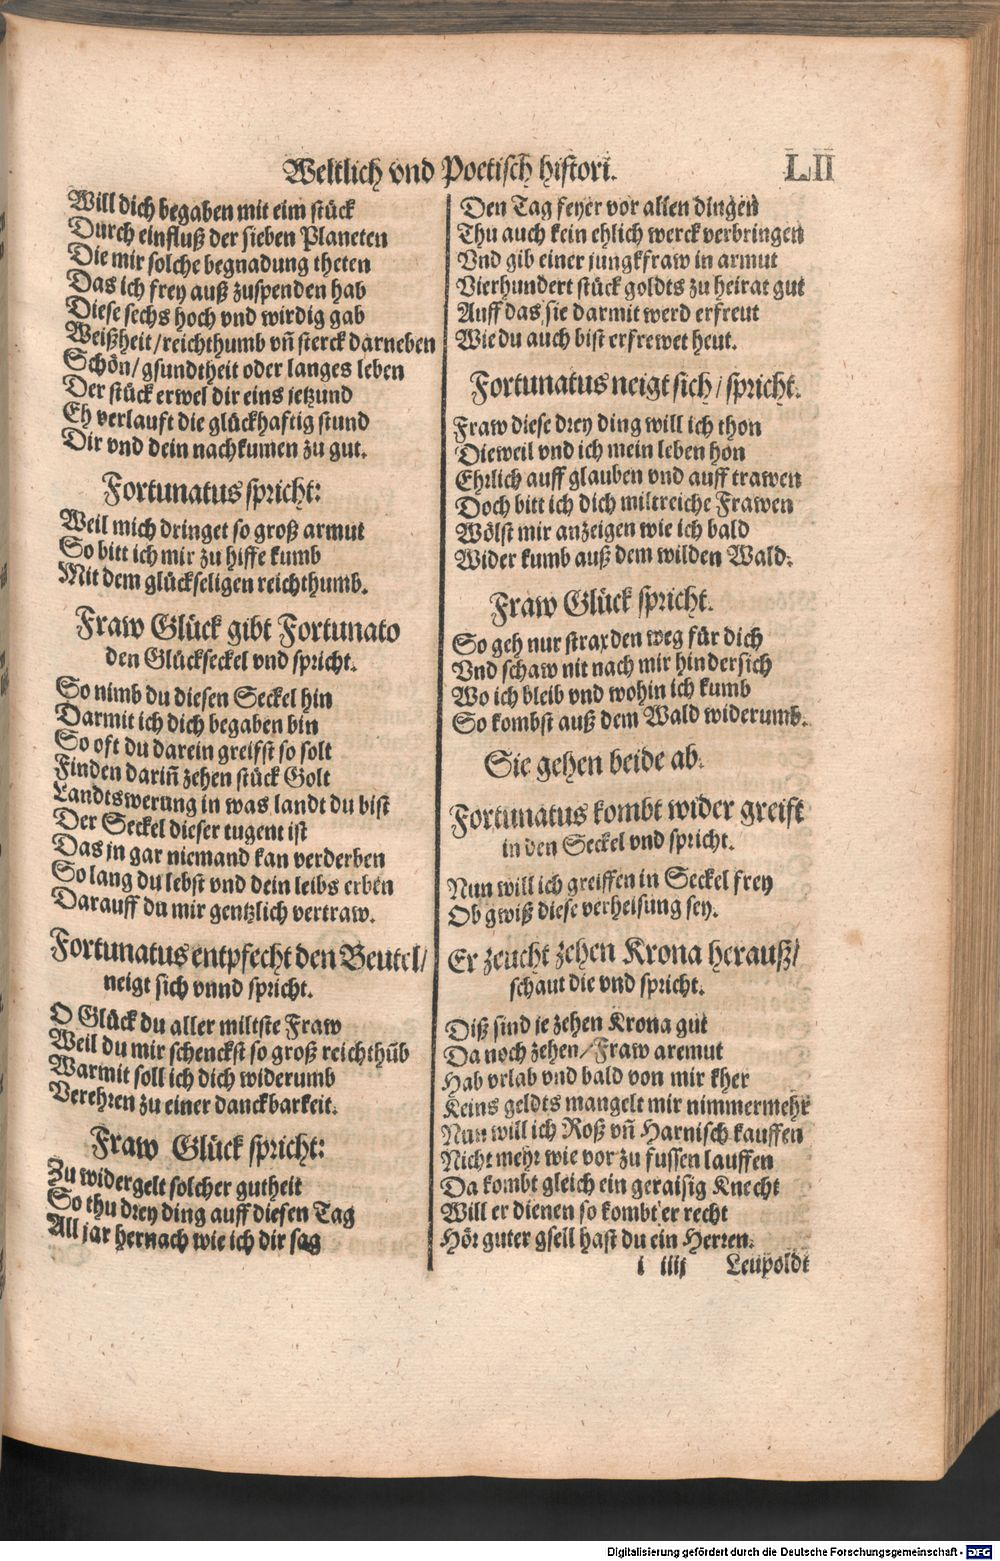 Weltlich vnd Poetisch histori.
LII
Will dich begaben mit eim stück
Durch einfluß der sieben Planeten
Die mir solche begnadung theten
Das ich frey auß zuspenden hab
Diese sechs hoch vnd wirdig gab
Weißheit/reichthumb vñ sterck darneben
Schön/gsundtheit oder langes leben
Der stück erwel dir eins jetzund
Eh verlauft die glückhaftig stund
Dir vnd dein nachkumen zu gut.
Fortunatus spricht:
Weil mich dringet so groß armut
So bitt ich mir zu hiffe kumb
Mit dem glückseligen reichthumb.
Fraw Glück gibt Fortunato
den Glückseckel vnd spricht.
So nimb du diesen Seckel hin
Darmit ich dich begaben bin
So oft du darein greifst so solt
Finden dariñ zehen stück Golt
Landtswerung in was landt du bist
Der Seckel dieser tugent ist
Das jn gar niemand kan verderben
So lang du lebst vnd dein leibs erben
Darauff du mir gentzlich vertraw.
Fortunatus entpfecht den Beutel/
neigt sich vnnd spricht.
O Glück du aller miltste Fraw
Weil du mir schenckst so groß reichthũb
Warmit soll ich dich widerumb
Verehren zu einer danckbarkeit.
Fraw Glück spricht:
Zu widergelt solcher gutheit
So thu drey ding auff diesen Tag
All jar hernach wie ich dir sag
Den Tag feyer vor allen dingen
Thu auch kein ehlich werck verbringen
Vnd gib einer jungkfraw in armut
Vierhundert stück goldts zu heirat gut
Auff das sie darmit werd erfreut
Wie du auch bist erfrewet heut.
Fortunatus neigt sich/spricht.
Fraw diese drey ding will ich thon
Dieweil vnd ich mein leben hon
Ehrlich auff glauben vnd auff trawen
Doch bitt ich dich miltreiche Frawen
Wölst mir anzeigen wie ich bald
Wider kumb auß dem wilden Wald.
Fraw Glück spricht.
So geh nur strax den weg für dich
Vnd schaw nit nach mir hindersich
Wo ich bleib vnd wohin ich kumb
So kombst auß dem Wald widerumb.
Sie gehen beide ab.
Fortunatus kombt wider greift
in den Seckel vnd spricht.
Nun will ich greiffen in Seckel frey
Ob gwiß diese verheisung sey.
Er zeucht zehen Krona herauß/
schaut die vnd spricht.
Diß sind je zehen Krona gut
Da noch zehen/Fraw aremut
Hab vrlab vnd bald von mir kher
Keins geldts mangelt mir nimmermehr
Nun will ich Roß vñ Harnisch kauffen
Nicht mehr wie vor zu fussen lauffen
Da kombt gleich ein geraisig Knecht
Will er dienen so kombt er recht
Hör guter gsell hast du ein Herren.
i iiij Leupoldt
Digitalisierung gefördert durch die Deutsche Forschungsgemeinschaft - DFG